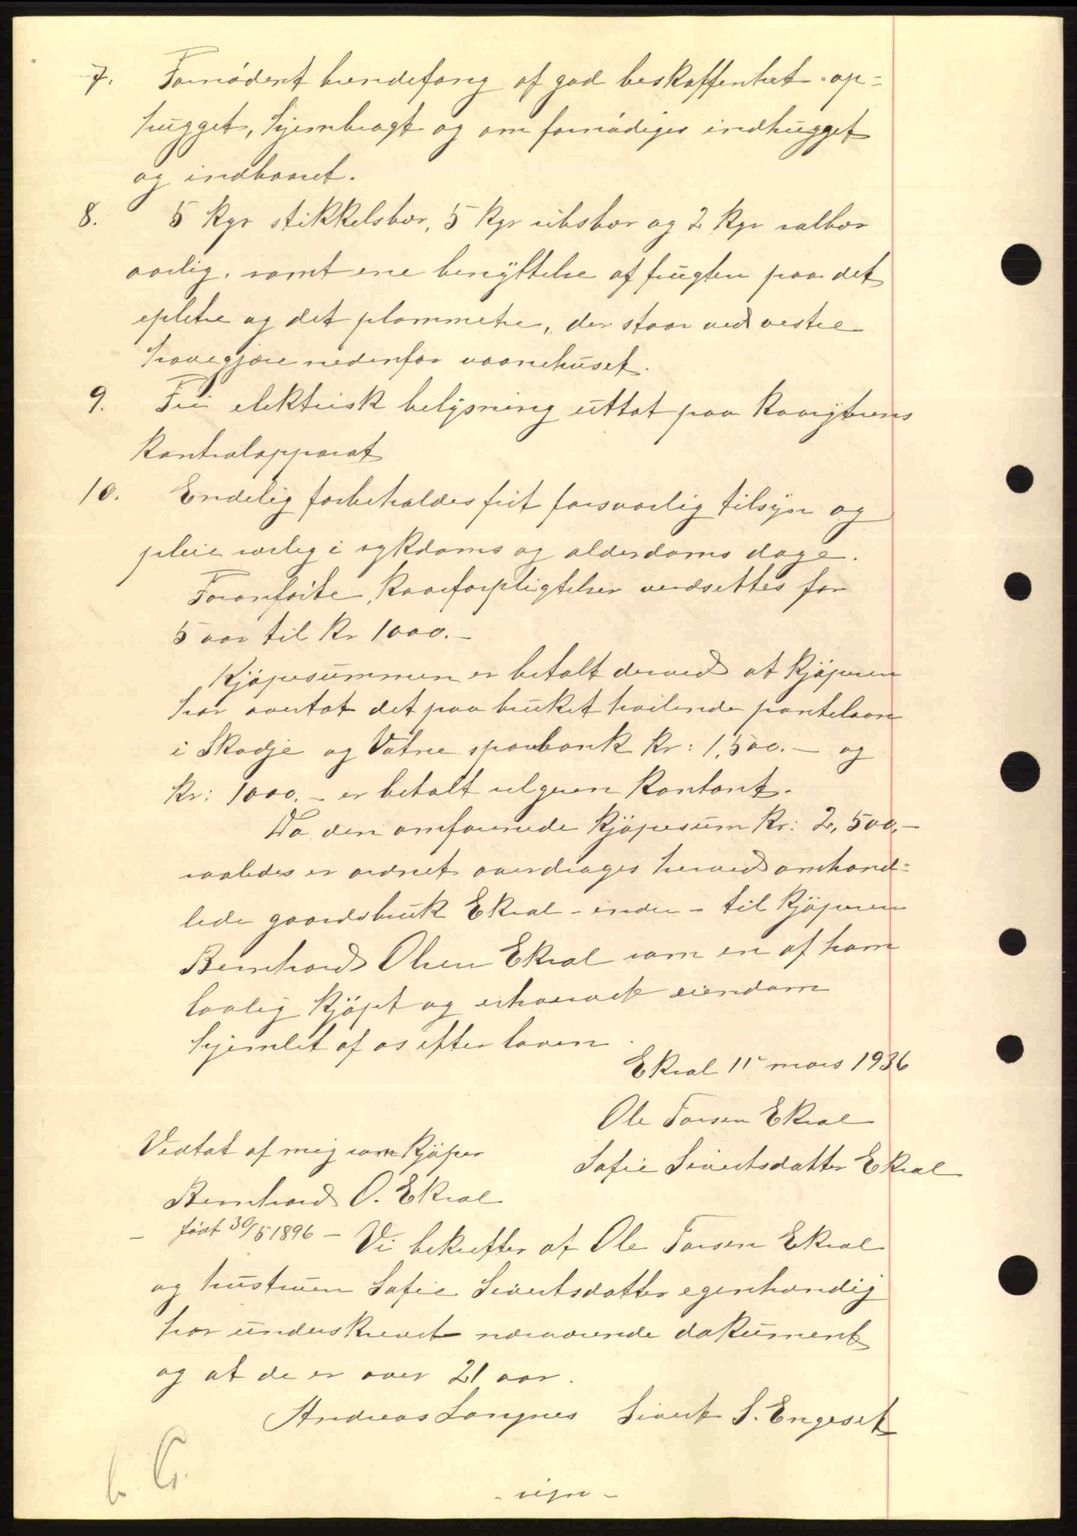 7. Fornødent brendefang af god beskaffenhet op=
hugget, hjembragt og om fornødiges indhugget
og indbaaret.
8. 5 kgr stikkelsbær, 5 kgr ribsbær og 2 kgr solbær
aarlig, samt ene benyttelse af frugten paa det
epletre og det plommetre, der staar ved vestre
havegjære nedenfor vaanehuset.
9. Fri elektrisk belysning uttat paa kaarytrens
kontrolapparat
10. Endelig forbeholdes frit forsvarlig tilsyn og
pleie særlig i sykdoms og alderdoms dage.
Foranførte kaarforpligtelser verdsettes for
5 aar til kr 1000.-
Kjøpesummen er betalt derved at kjøperen
har overtat det paa bruket heilende pantelaan
i Skodje og Vatne sparebank kr: 1,500.- og
kr: 1000.- er betalt selgeren kontant.
Da den omforenede kjøpesum kr: 2,500.-
saaledes er ordnet overdrages herved omhand=
lede gaardsbruk Ekral - indre - til kjøperen
Bernhard Olsen Ekral som en af ham
lovlig kjøpt og erhvervet eiendom
hjemlet af os efter loven.
Ekral 11 mars 1936
Ole Larsen Ekral
Sofie Sivertsdatter Ekral
Vedtat af mig som kjøper
Bernhard O. Ekral
- født 30/5 1896 -
Vi bekrefter at Ole Larsen Ekral
og hustruen Sofie Sivertsdatter egenhændig
har underskrevet nærværende dokument
og at de er over 21 aar.
Andreas Langnes Sivert S. Engeset
- sign -